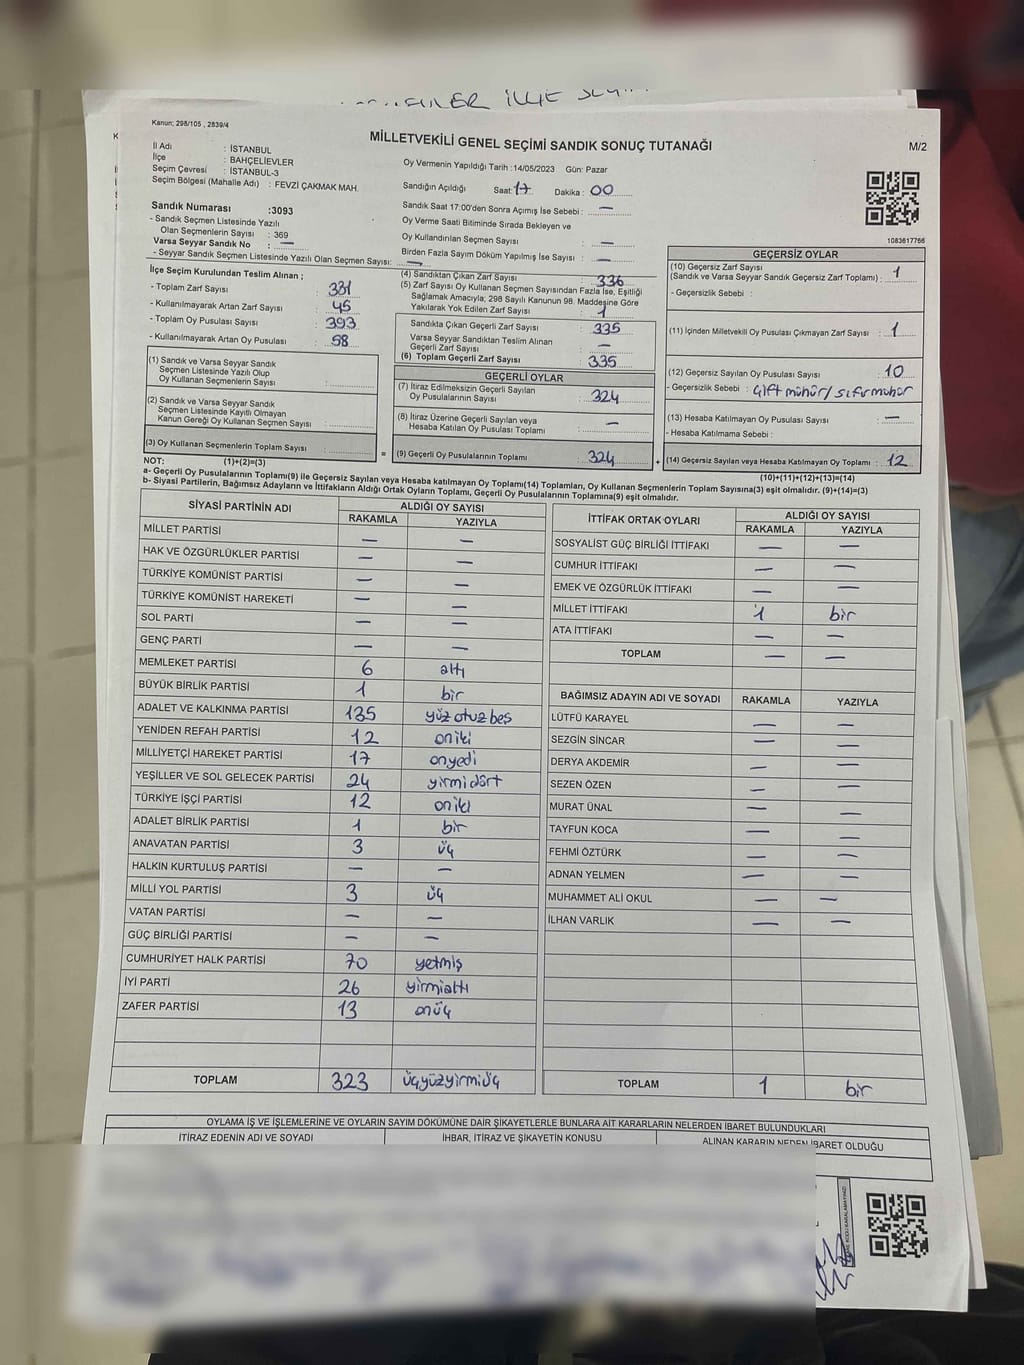 Kanun; 298/105 , 2839/4
MİLLETVEKİLİ GENEL SEÇİMİ SANDIK SONUÇ TUTANAĞI
M/2
İl Adı : İSTANBUL
İlçe : BAHÇELİEVLER
Seçim Çevresi : İSTANBUL-3
Seçim Bölgesi (Mahalle Adı) : FEVZİ ÇAKMAK MAH.
Oy Vermenin Yapıldığı Tarih :14/05/2023 Gün: Pazar
Sandığın Açıldığı Saat: 17 Dakika : 00
Sandık Saat 17:00'den Sonra Açımış İse Sebebi : —
Oy Verme Saati Bitiminde Sırada Bekleyen ve
Oy Kullandırılan Seçmen Sayısı : —
Birden Fazla Sayım Döküm Yapılmış İse Sayısı : —
1083617766
Sandık Numarası :3093
- Sandık Seçmen Listesinde Yazılı
Olan Seçmenlerin Sayısı : 369
Varsa Seyyar Sandık No : —
- Seyyar Sandık Seçmen Listesinde Yazılı Olan Seçmen Sayısı: —
İlçe Seçim Kurulundan Teslim Alınan ;
- Toplam Zarf Sayısı : 381
- Kullanılmayarak Artan Zarf Sayısı : 45
- Toplam Oy Pusulası Sayısı : 393
- Kullanılmayarak Artan Oy Pusulası : 58
(1) Sandık ve Varsa Seyyar Sandık
Seçmen Listesinde Yazılı Olup
Oy Kullanan Seçmenlerin Sayısı :
(2) Sandık ve Varsa Seyyar Sandık
Seçmen Listesinde Kayıtlı Olmayan
Kanun Gereği Oy Kullanan Seçmen Sayısı :
(3) Oy Kullanan Seçmenlerin Toplam Sayısı :
(4) Sandıktan Çıkan Zarf Sayısı : 336
(5) Zarf Sayısı Oy Kullanan Seçmen Sayısından Fazla İse, Eşitliği
Sağlamak Amacıyla; 298 Sayılı Kanunun 98. Maddesine Göre
Yakılarak Yok Edilen Zarf Sayısı : 1
Sandıkta Çıkan Geçerli Zarf Sayısı : 335
Varsa Seyyar Sandıktan Teslim Alınan
Geçerli Zarf Sayısı : —
(6) Toplam Geçerli Zarf Sayısı : 335
GEÇERLİ OYLAR
(7) İtiraz Edilmeksizin Geçerli Sayılan
Oy Pusulalarının Sayısı : 324
(8) İtiraz Üzerine Geçerli Sayılan veya
Hesaba Katılan Oy Pusulası Toplamı : —
= (9) Geçerli Oy Pusulalarının Toplamı : 324
GEÇERSİZ OYLAR
(10) Geçersiz Zarf Sayısı
(Sandık ve Varsa Seyyar Sandık Geçersiz Zarf Toplamı) : 1
- Geçersizlik Sebebi :
(11) İçinden Milletvekili Oy Pusulası Çıkmayan Zarf Sayısı : 1
(12) Geçersiz Sayılan Oy Pusulası Sayısı : 10
- Geçersizlik Sebebi : Çift mühür/sıfır mühür
(13) Hesaba Katılmayan Oy Pusulası Sayısı : —
- Hesaba Katılmama Sebebi :
+ (14) Geçersiz Sayılan veya Hesaba Katılmayan Oy Toplamı : 12
NOT: (1)+(2)=(3)
(10)+(11)+(12)+(13)=(14)
a- Geçerli Oy Pusulalarının Toplamı(9) ile Geçersiz Sayılan veya Hesaba katılmayan Oy Toplamı(14) Toplamları, Oy Kullanan Seçmenlerin Toplam Sayısına(3) eşit olmalıdır. (9)+(14)=(3)
b- Siyasi Partilerin, Bağımsız Adayların ve İttifakların Aldığı Ortak Oyların Toplamı, Geçerli Oy Pusulalarının Toplamına(9) eşit olmalıdır.
SİYASİ PARTİNİN ADI ALDIĞI OY SAYISI
RAKAMLA YAZIYLA
MİLLET PARTİSİ — —
HAK VE ÖZGÜRLÜKLER PARTİSİ — —
TÜRKİYE KOMÜNİST PARTİSİ — —
TÜRKİYE KOMÜNİST HAREKETİ — —
SOL PARTİ — —
GENÇ PARTİ — —
MEMLEKET PARTİSİ 6 altı
BÜYÜK BİRLİK PARTİSİ 1 bir
ADALET VE KALKINMA PARTİSİ 135 yüzotuzbeş
YENİDEN REFAH PARTİSİ 12 oniki
MİLLİYETÇİ HAREKET PARTİSİ 17 onyedi
YEŞİLLER VE SOL GELECEK PARTİSİ 24 yirmidört
TÜRKİYE İŞÇİ PARTİSİ 12 oniki
ADALET BİRLİK PARTİSİ 1 bir
ANAVATAN PARTİSİ 3 üç
HALKIN KURTULUŞ PARTİSİ — —
MİLLİ YOL PARTİSİ 3 üç
VATAN PARTİSİ — —
GÜÇ BİRLİĞİ PARTİSİ — —
CUMHURİYET HALK PARTİSİ 70 yetmiş
İYİ PARTİ 26 yirmialtı
ZAFER PARTİSİ 13 onüç
TOPLAM 323 üçyüzyirmiüç
İTTİFAK ORTAK OYLARI ALDIĞI OY SAYISI
RAKAMLA YAZIYLA
SOSYALİST GÜÇ BİRLİĞİ İTTİFAKI — —
CUMHUR İTTİFAKI — —
EMEK VE ÖZGÜRLÜK İTTİFAKI — —
MİLLET İTTİFAKI 1 bir
ATA İTTİFAKI — —
TOPLAM — —
BAĞIMSIZ ADAYIN ADI VE SOYADI RAKAMLA YAZIYLA
LÜTFÜ KARAYEL — —
SEZGİN SİNCAR — —
DERYA AKDEMİR — —
SEZEN ÖZEN — —
MURAT ÜNAL — —
TAYFUN KOCA — —
FEHMİ ÖZTÜRK — —
ADNAN YELMEN — —
MUHAMMET ALİ OKUL — —
İLHAN VARLIK — —
TOPLAM 1 bir
OYLAMA İŞ VE İŞLEMLERİNE VE OYLARIN SAYIM DÖKÜMÜNE DAİR ŞİKAYETLERLE BUNLARA AİT KARARLARIN NELERDEN İBARET BULUNDUKLARI
İTİRAZ EDENİN ADI VE SOYADI İHBAR, İTİRAZ VE ŞİKAYETİN KONUSU ALINAN KARARIN NEDEN İBARET OLDUĞU